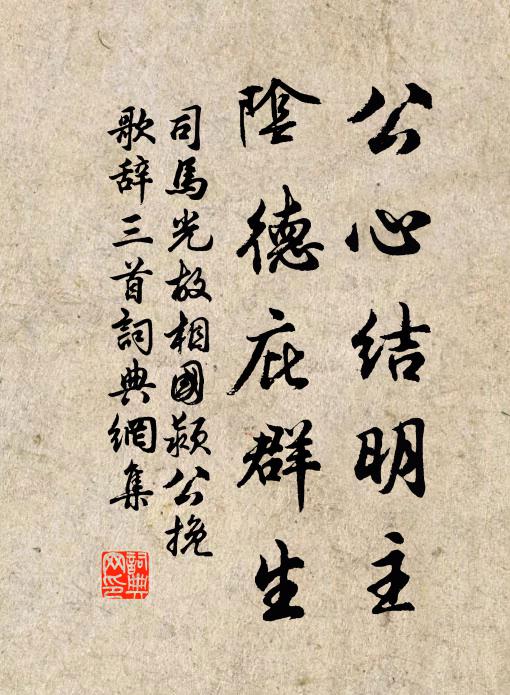 公心结明主
陰德庇群生
司馬光故相國颍公挽
歌辞三首詞典網集
詞典網印